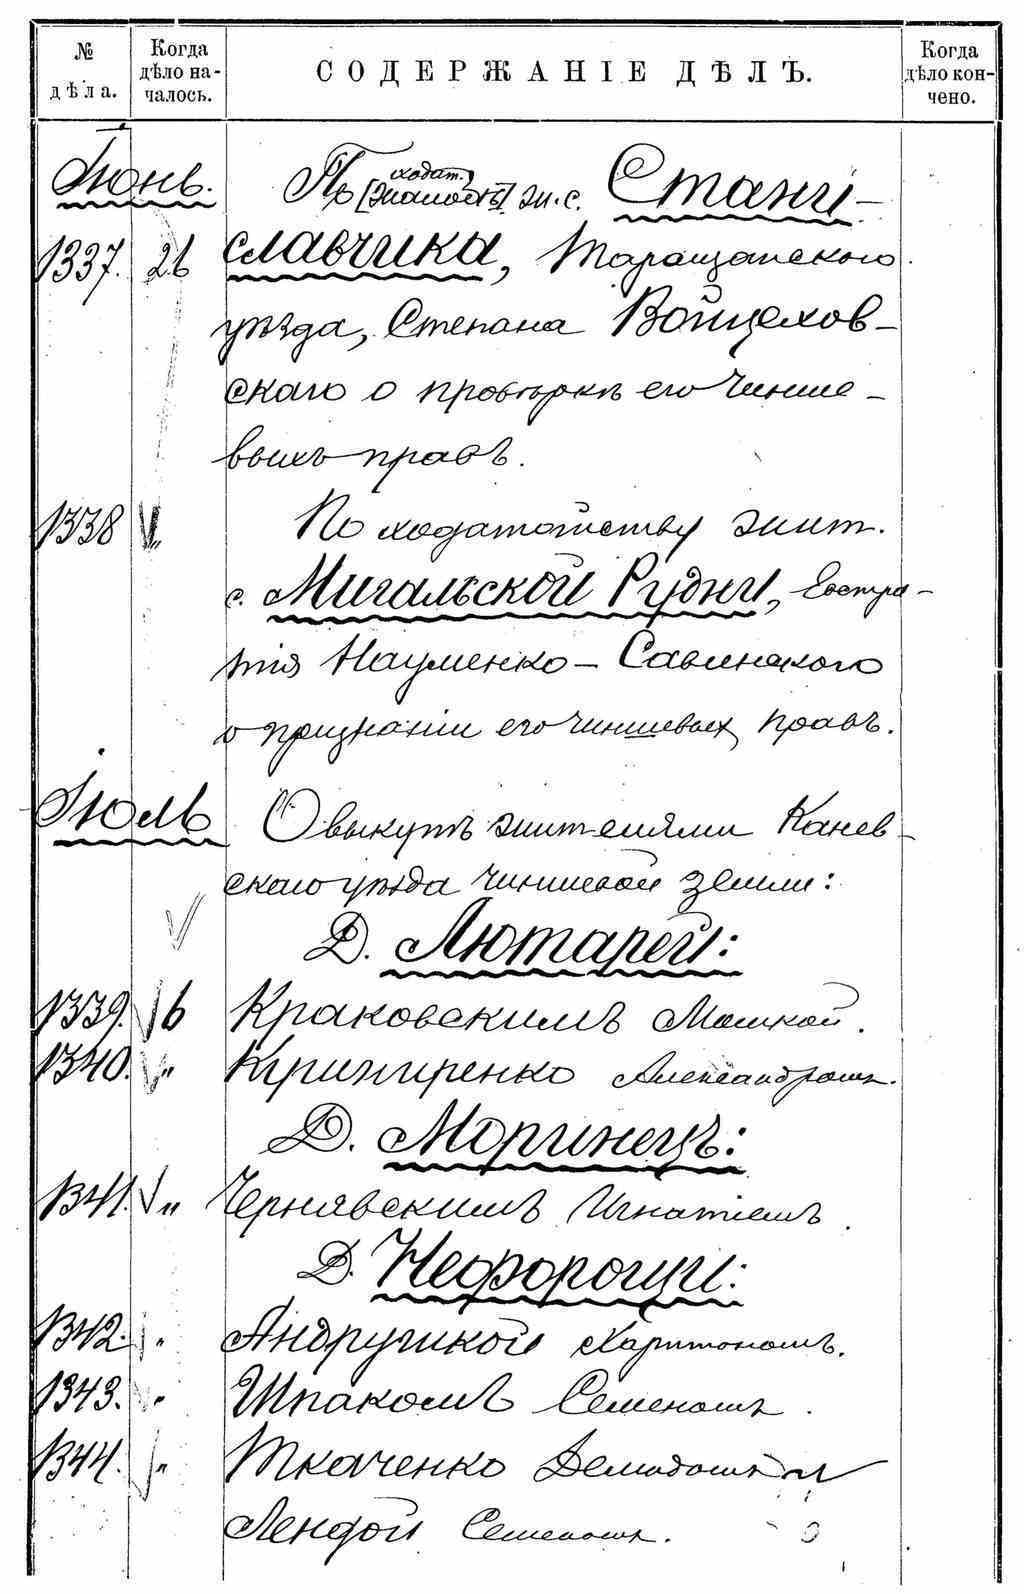 № дѣла.
Когда дѣло началось.
СОДЕРЖАНІЕ ДѢЛЪ.
Когда дѣло кончено.
Іюнь.
ходат.
По [жалобѣ] ж. с. Стани-
1337. 26 славчика, Таращанского
уѣзда, Степана Войцехов-
скаго о провѣркѣ его чинше-
выхъ правъ.
1338 По ходатайству жит.
с. Мигальской Рудни, Евстра-
тія Науменко-Савинского
о признаніи его чиншевых правъ.
Іюль О выкупѣ жителями Канев-
скаго уѣзда чиншевой земли:
Д. Лютарей:
1339. 6 Краковскимъ Мошкой.
1340. " Криширенко Александромъ.
Д. Моринецъ:
1341. " Чернявскимъ Игнатіемъ.
Д. Нефорощи:
1342. " Андрушкой Харитономъ.
1343. " Шпакомъ Семеномъ.
1344. " Ткаченко Демидомъ и
Лендой Семеномъ.